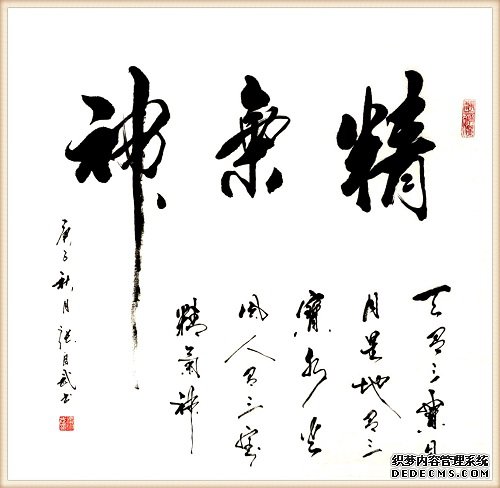 精氣神
天有三寶日
月星地有三
寶水火
風人有三寶
精氣神
庚子秋月張月武书
织梦内容管理系统
DEDECMS.COM